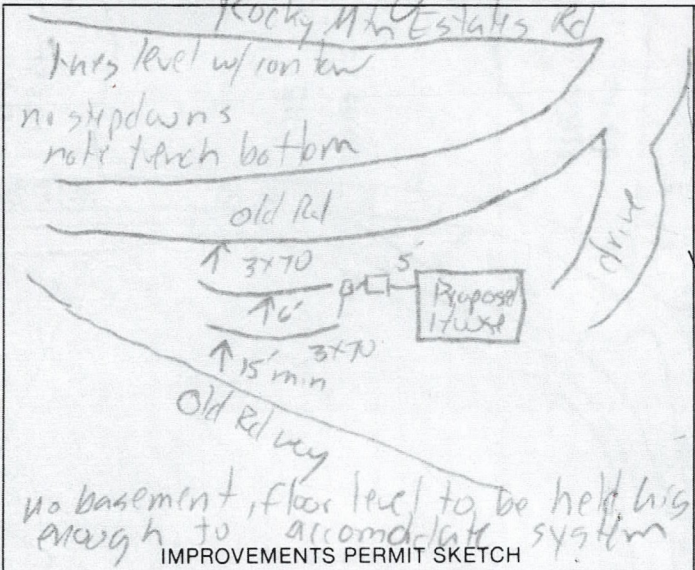 Rocky Mtn Estates Rd
lines level w/ contour
no stepdowns
note trench bottom
Old Rd
drive
3x70
5'
Proposed
House
6'
3x70
15' min
Old Rd
no basement, floor level to be held hig
enough to accomodate system
IMPROVEMENTS PERMIT SKETCH